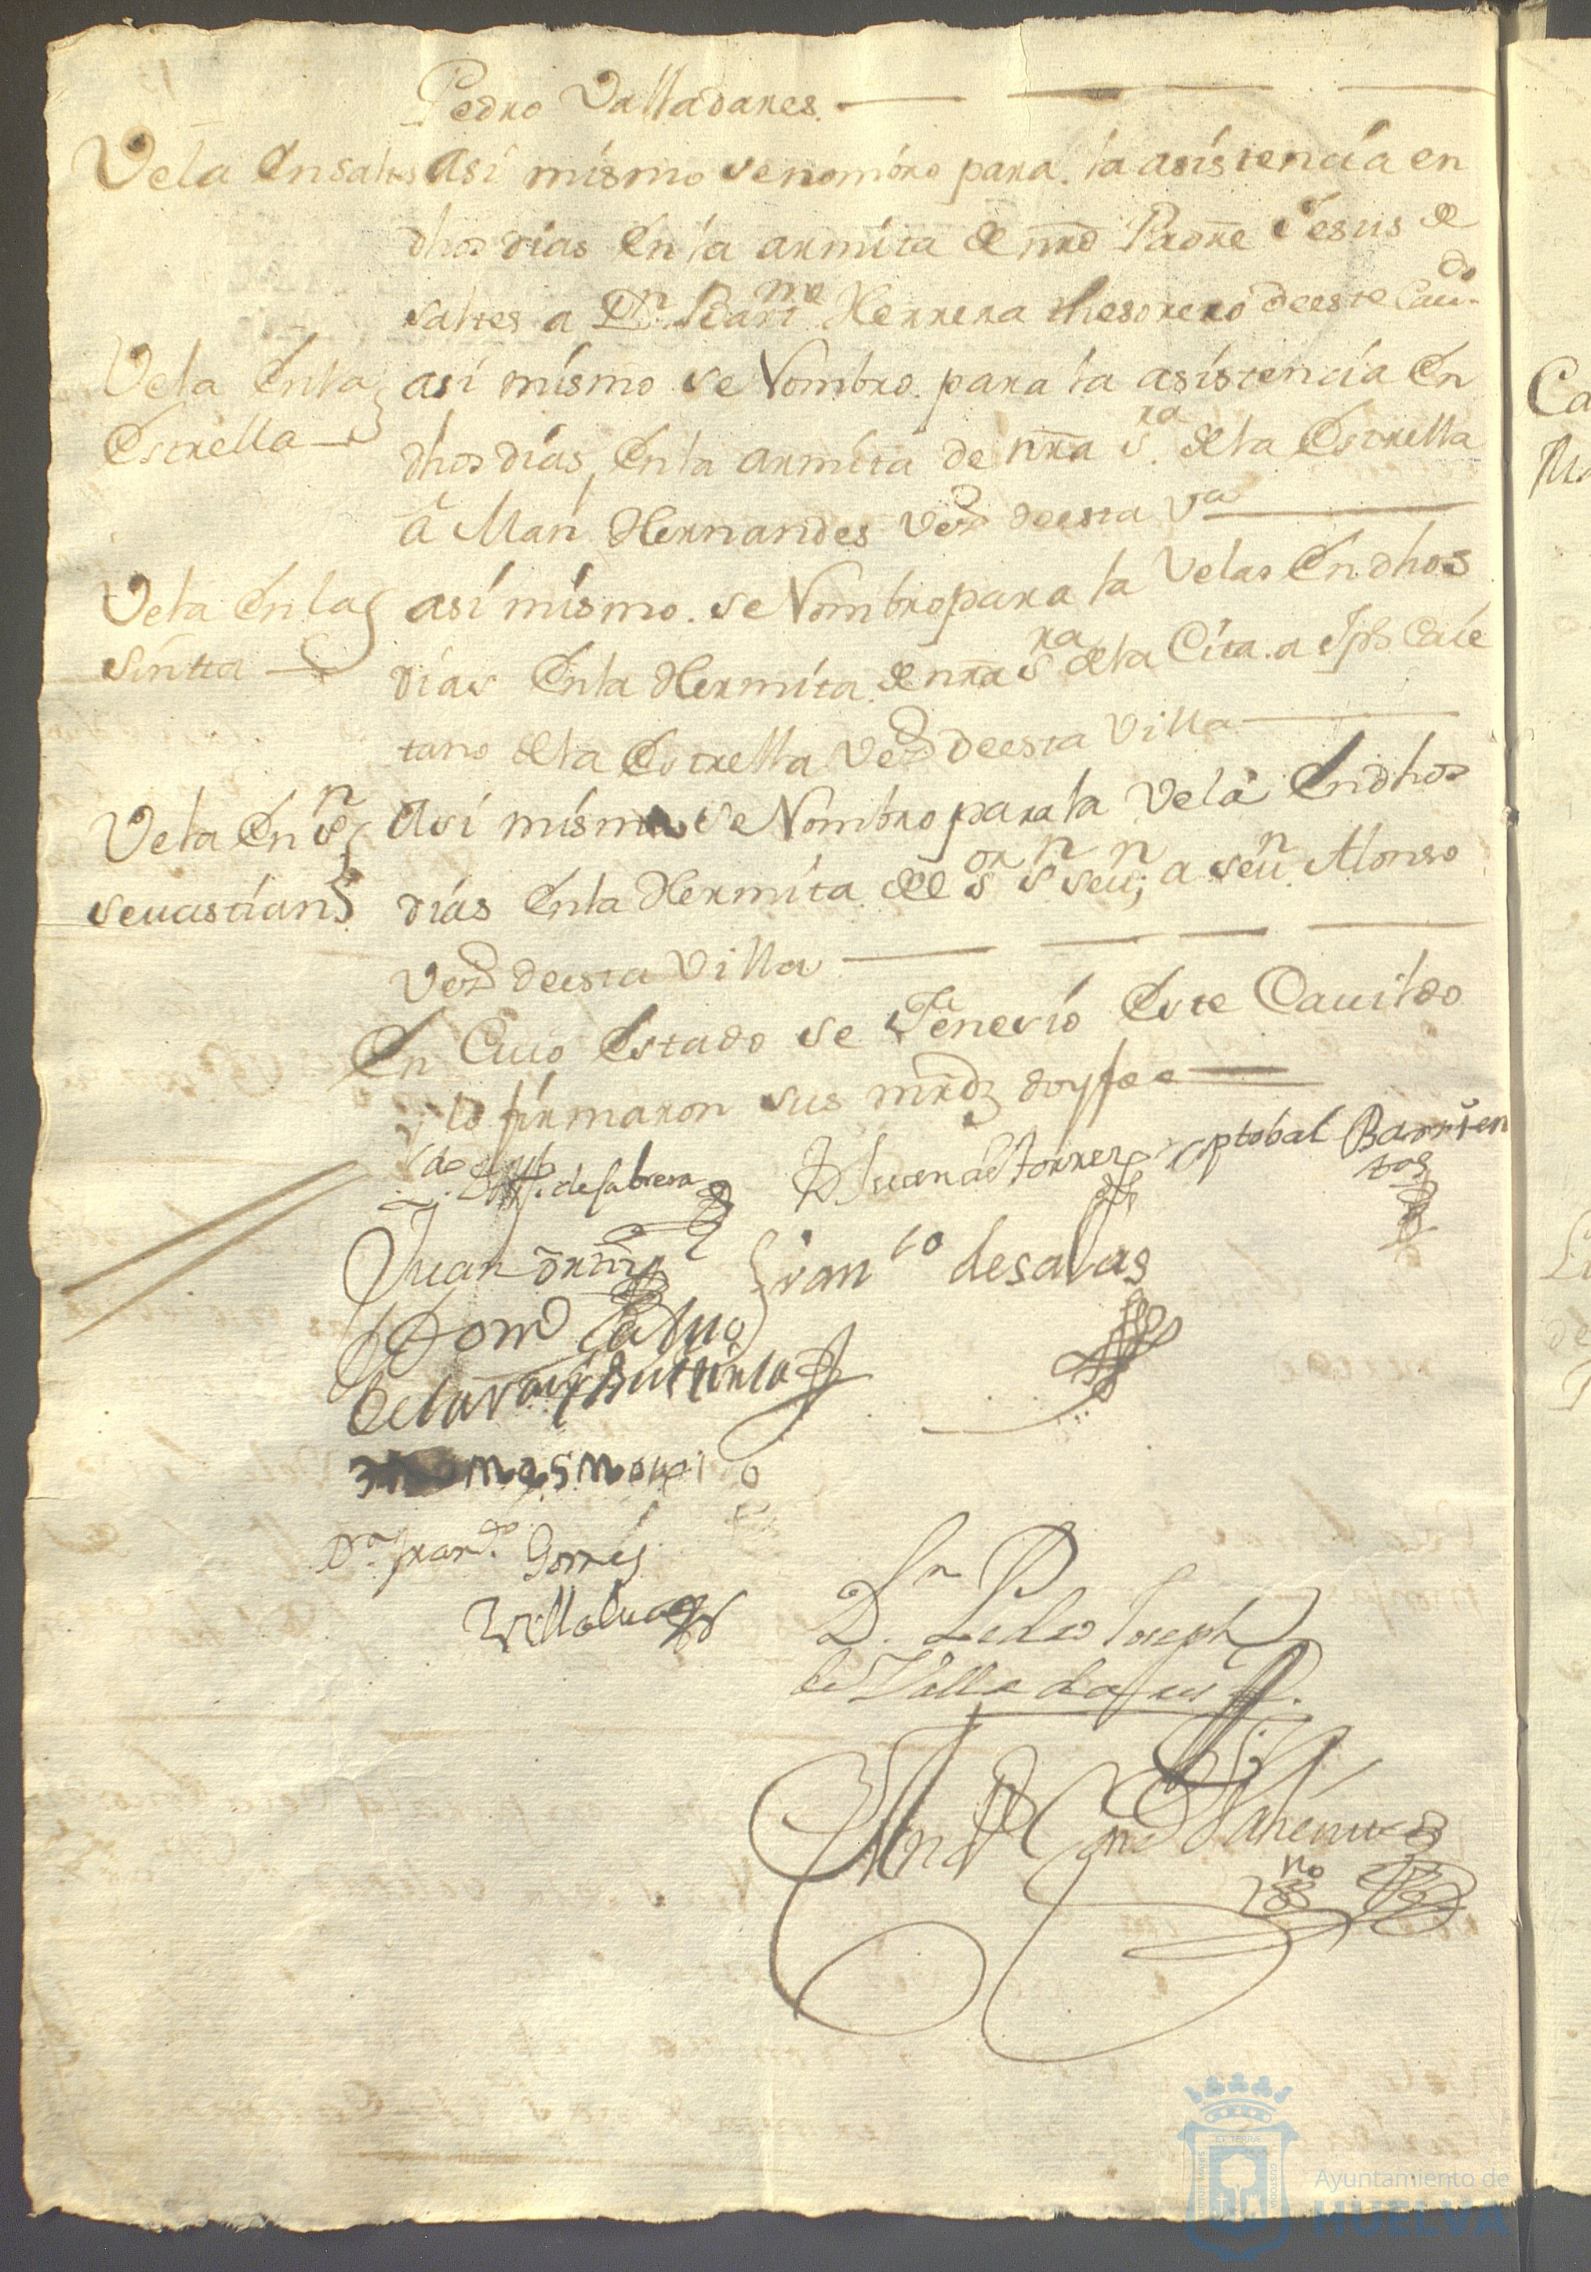 Pedro Valladares.
Vela En saltes Asi mismo se nombro para la asistencia en
dhos dias En la armita de nrō Padre Jesus de
saltes a Dn. Bartme Herrera thesorero deeste Caudo
Vela Enla asi mismo se Nombro para la asistencia En
Estrella dhos dias, Enla armita de nrā sra dela Estrella
â Man Hernandes Vezº deesta Va
Vela En la asi mismo se Nombro para la Vela En dhos
sintta dias Enla Hermita de nrā sra dela Cita a Jph Caie
tano dela Estrella Vezº deesta Villa
Vela En sn Asi mismo se Nombro para la Vela En dhos
seuastian dias Enla Hermita de el sor sn seun; a seun Alonso
Vezº deesta Villa
En Cuio Estado se Feneció Este Cauildo
y lo firmaron sus mrdz doyfee
de Cabrera Dn Juan de Torres xptobal Barrien
tos
Juan Franco de salas
Domº Calvo
Dn Franco Gomes
Villalua
Dn Pedro Joseph
de Valladares
Jimenez
no
Ayuntamiento de
HUELVA